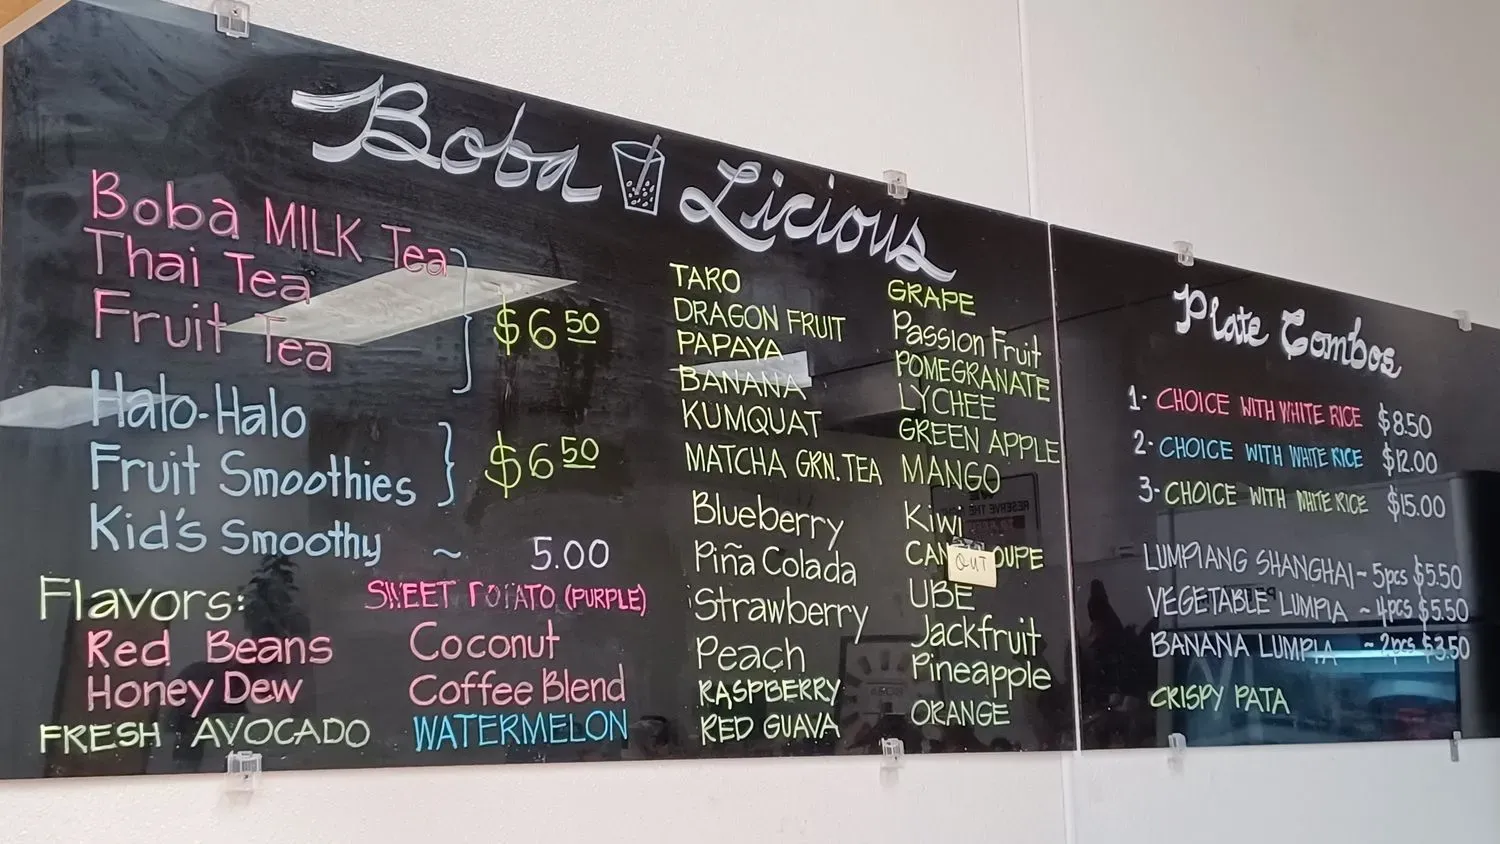 Boba Licious
Boba MILK Tea
Thai Tea
Fruit Tea
$6.50
Halo-Halo
Fruit Smoothies
$6.50
Kid's Smoothy ~ 5.00
Flavors:
SWEET POTATO (PURPLE)
Red Beans
Coconut
Honey Dew
Coffee Blend
FRESH AVOCADO
WATERMELON
TARO
DRAGON FRUIT
PAPAYA
BANANA
KUMQUAT
MATCHA GRN. TEA
Blueberry
Piña Colada
Strawberry
Peach
RASPBERRY
RED GUAVA
GRAPE
Passion Fruit
POMEGRANATE
LYCHEE
GREEN APPLE
MANGO
Kiwi
OUT
UBE
Jackfruit
Pineapple
ORANGE
Plate Combos
1- CHOICE WITH WHITE RICE $8.50
2- CHOICE WITH WHITE RICE $12.00
3- CHOICE WITH WHITE RICE $15.00
LUMPIANG SHANGHAI ~ 5pcs $5.50
VEGETABLE LUMPIA ~ 4pcs $5.50
BANANA LUMPIA ~ 2pcs $3.50
CRISPY PATA